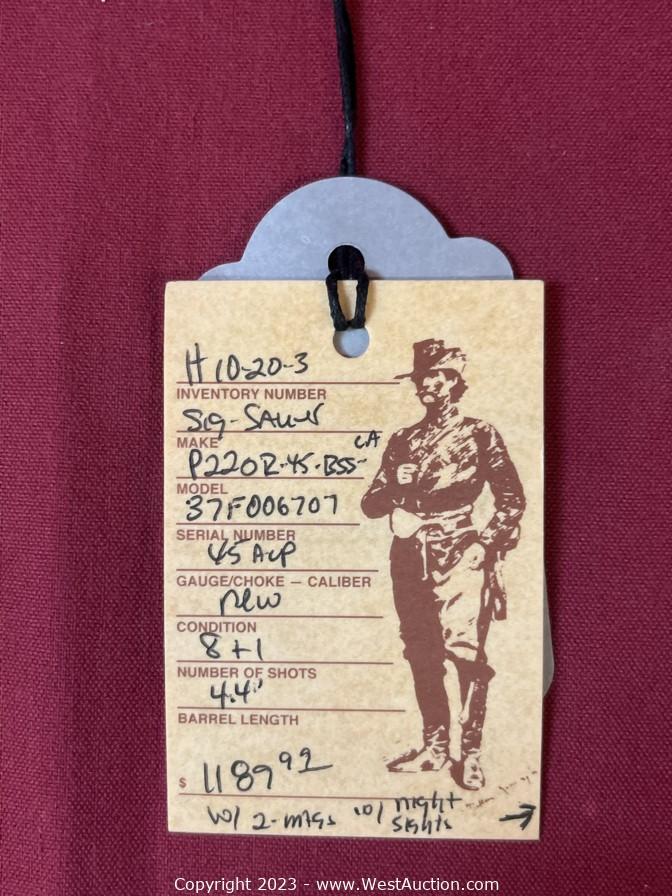 H 10-20-3
INVENTORY NUMBER
Sig-Sauer
MAKE
P220R-45-BSS-CA
MODEL
37F006707
SERIAL NUMBER
45 ACP
GAUGE/CHOKE — CALIBER
new
CONDITION
8+1
NUMBER OF SHOTS
4.4"
BARREL LENGTH
$ 1189 92
w/ 2-mags w/ night sights →
Copyright 2023 - www.WestAuction.com